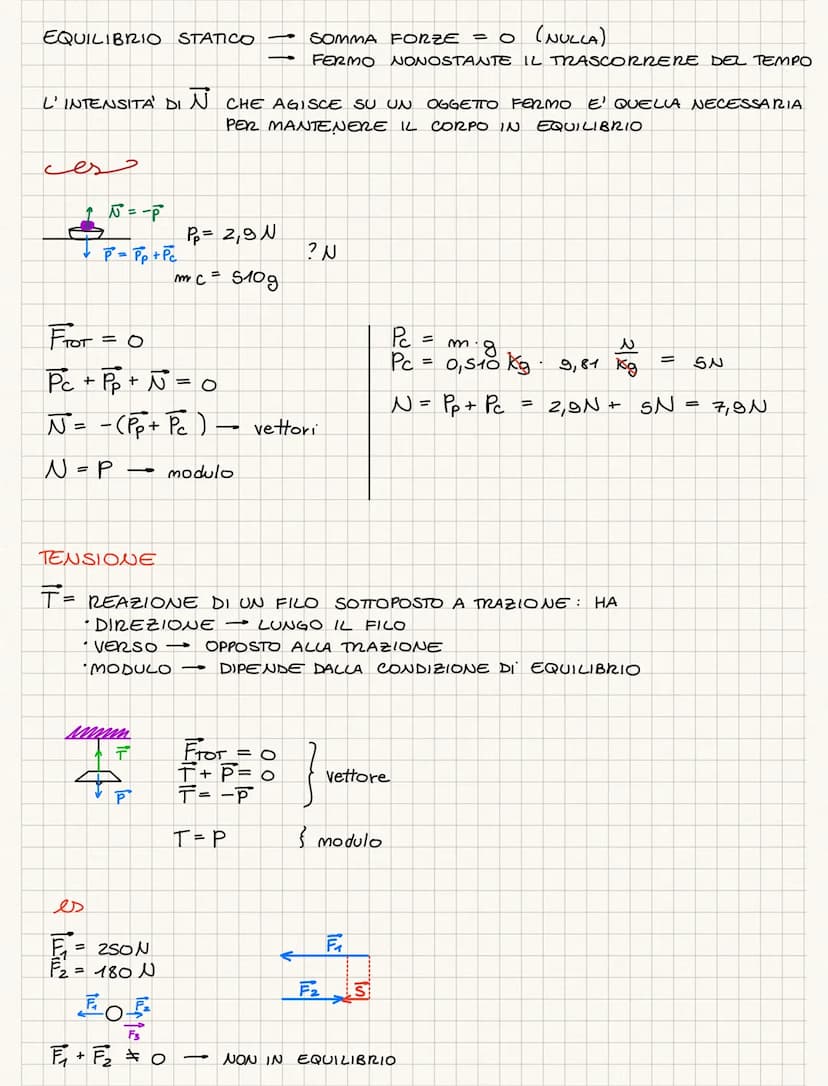 EQUILIBRIO STATICO → SOMMA FORZE = 0 (NULLA)
→ FERMO NONOSTANTE IL TRASCORRERE DEL TEMPO
L'INTENSITA' DI N⃗ CHE AGISCE SU UN OGGETTO FERMO E' QUELLA NECESSARIA
PER MANTENERE IL CORPO IN EQUILIBRIO
es
N⃗ = -P⃗
P⃗ = P⃗p + P⃗c
Pp = 2,9 N
mc = 510g
? N
F⃗TOT = 0
P⃗c + P⃗p + N⃗ = 0
N⃗ = -(P⃗p + P⃗c) → vettori
N = P → modulo
Pc = m·g
Pc = 0,510 kg · 9,81 N/kg = 5N
N = Pp + Pc = 2,9N + 5N = 7,9N
TENSIONE
T⃗ = REAZIONE DI UN FILO SOTTOPOSTO A TRAZIONE: HA
· DIREZIONE → LUNGO IL FILO
· VERSO → OPPOSTO ALLA TRAZIONE
· MODULO → DIPENDE DALLA CONDIZIONE DI EQUILIBRIO
T⃗
P⃗
F⃗TOT = 0
T⃗ + P⃗ = 0
T⃗ = -P⃗
} vettore
T = P { modulo
es
F⃗1 = 250N
F⃗2 = 180 N
F⃗1 F⃗2
F⃗3
F⃗1
F⃗2 S⃗
F⃗1 + F⃗2 ≠ 0 → NON IN EQUILIBRIO